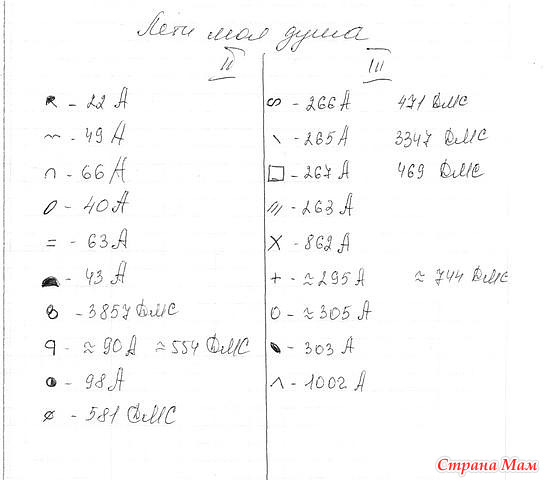 Лети моя душа
II
к - 22 А
~ - 49 А
∩ - 66 А
0 - 40 А
= - 63 А
- 43 А
8 - 3857 ДМС
9 - ≈ 90 А ≈ 554 ДМС
- 98 А
ø - 581 ДМС
III
∽ - 266 А 471 ДМС
\ - 265 А 3347 ДМС
□ - 267 А 469 ДМС
/// - 263 А
X - 862 А
+ - ≈ 295 А ≈ 744 ДМС
O - ≈ 305 А
- 303 А
^ - 1002 А
Страна Мам